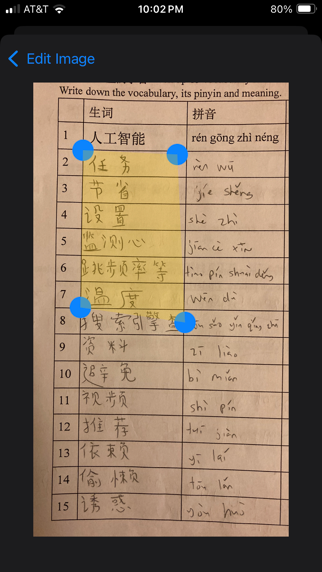 AT&T 10:02 PM 80%
Edit Image
Write down the vocabulary, its pinyin and meaning.
生词 拼音
1 人工智能 rén gōng zhì néng
2 任务 rèn wù
3 节省 jié shěng
4 设置 shè zhì
5 监测心 jiān cè xīn
6 跳频率等 tiào pín shuài děng
7 温度 wēn dù
8 搜索引擎 sōu suǒ yǐn qíng
9 资料 zī liào
10 避免 bì miǎn
11 视频 shì pín
12 推荐 tuī jiàn
13 依赖 yī lài
14 偷懒 tōu lǎn
15 诱惑 yòu huò